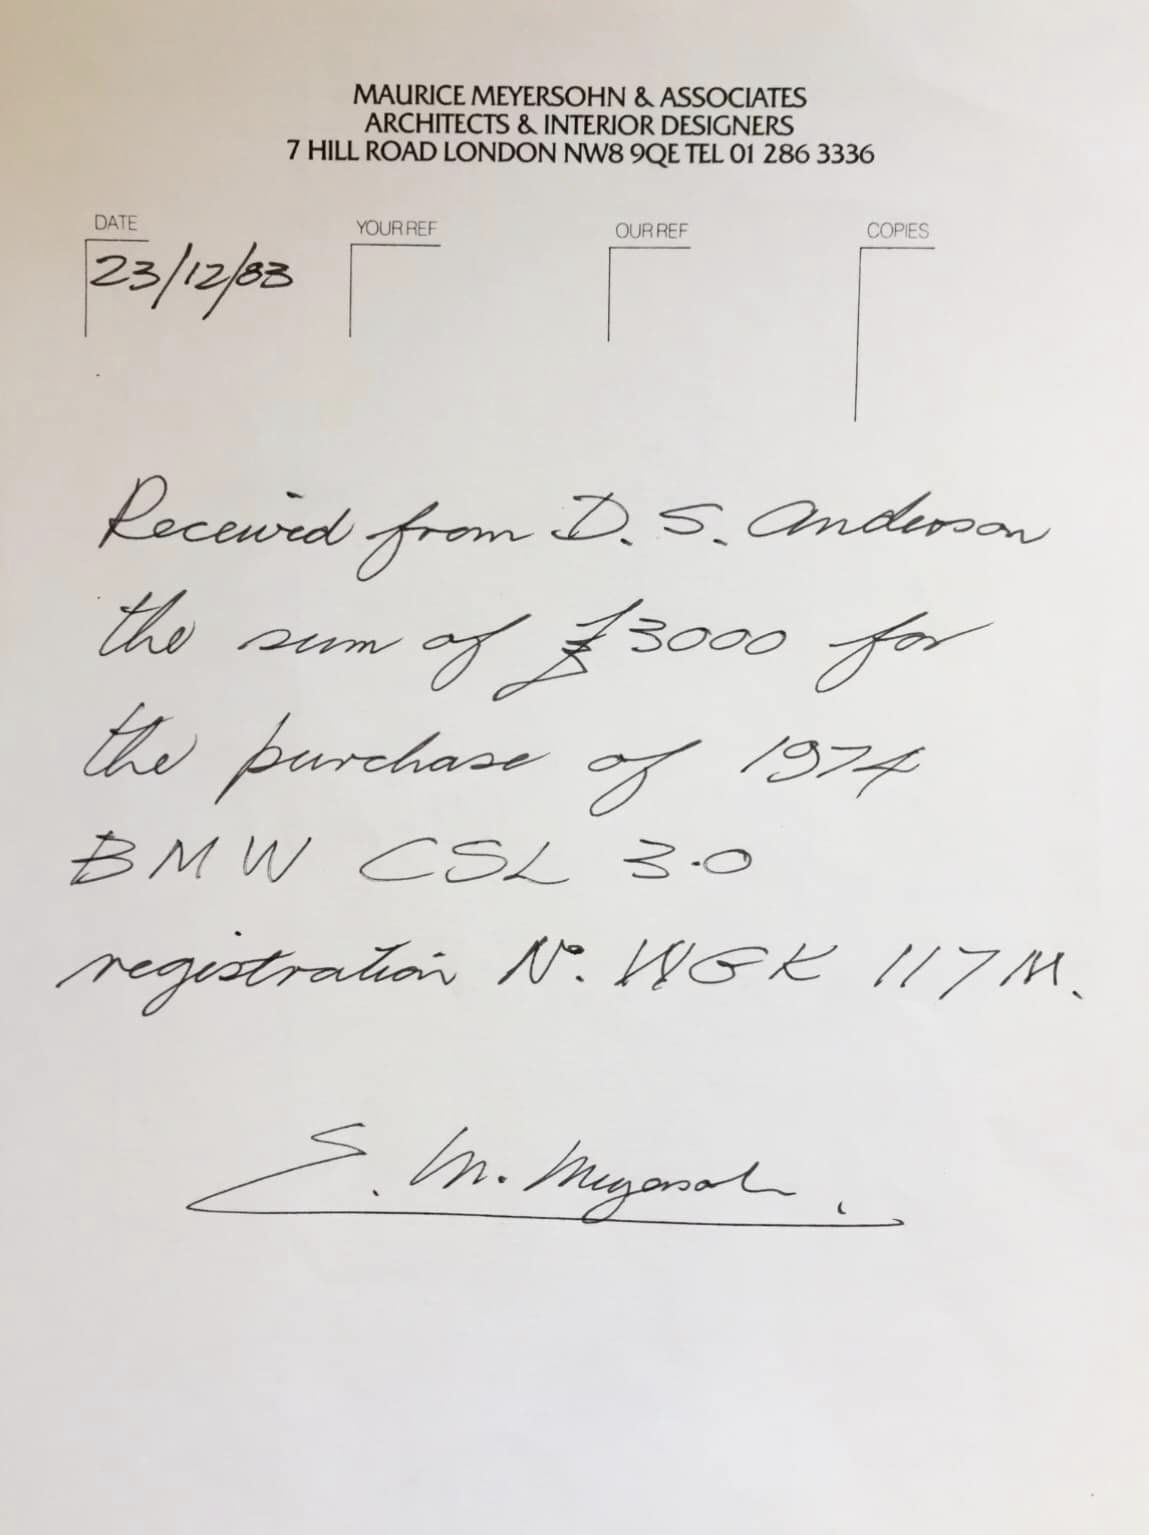 MAURICE MEYERSOHN & ASSOCIATES
ARCHITECTS & INTERIOR DESIGNERS
7 HILL ROAD LONDON NW8 9QE TEL 01 286 3336
DATE YOUR REF OUR REF COPIES
23/12/83
Received from D. S. Anderson
the sum of £3000 for
the purchase of 1974
BMW CSL 3.0
registration No. WGK 117M.
E. M. Meyersohn.